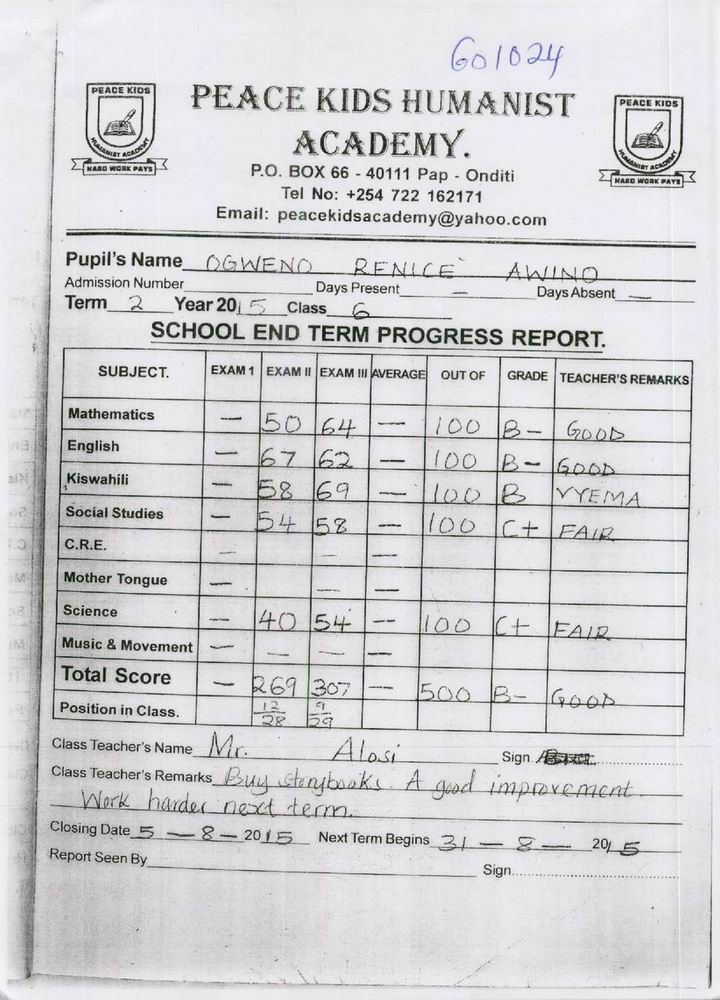 601024
PEACE KIDS
HUMANIST ACADEMY
HARD WORK PAYS
PEACE KIDS HUMANIST
ACADEMY.
PEACE KIDS
HUMANIST ACADEMY
HARD WORK PAYS
P.O. BOX 66 - 40111 Pap - Onditi
Tel No: +254 722 162171
Email: peacekidsacademy@yahoo.com
Pupil's Name OGWENO RENICE AWINO
Admission Number Days Present — Days Absent —
Term 2 Year 2015 Class 6
SCHOOL END TERM PROGRESS REPORT.
SUBJECT. EXAM 1 EXAM II EXAM III AVERAGE OUT OF GRADE TEACHER'S REMARKS
Mathematics — 50 64 — 100 B- GOOD
English — 67 62 — 100 B- GOOD
Kiswahili — 58 69 — 100 B VYEMA
Social Studies — 54 58 — 100 C+ FAIR
C.R.E. — — —
Mother Tongue — — —
Science — 40 54 — 100 C+ FAIR
Music & Movement — — — —
Total Score — 269 307 — 500 B- GOOD
Position in Class. 12/28 9/29
Class Teacher's Name Mr. Alosi Sign.
Class Teacher's Remarks Buy storybooks. A good improvement.
Work harder next term.
Closing Date 5 — 8 — 2015 Next Term Begins 31 — 8 — 2015
Report Seen By
Sign